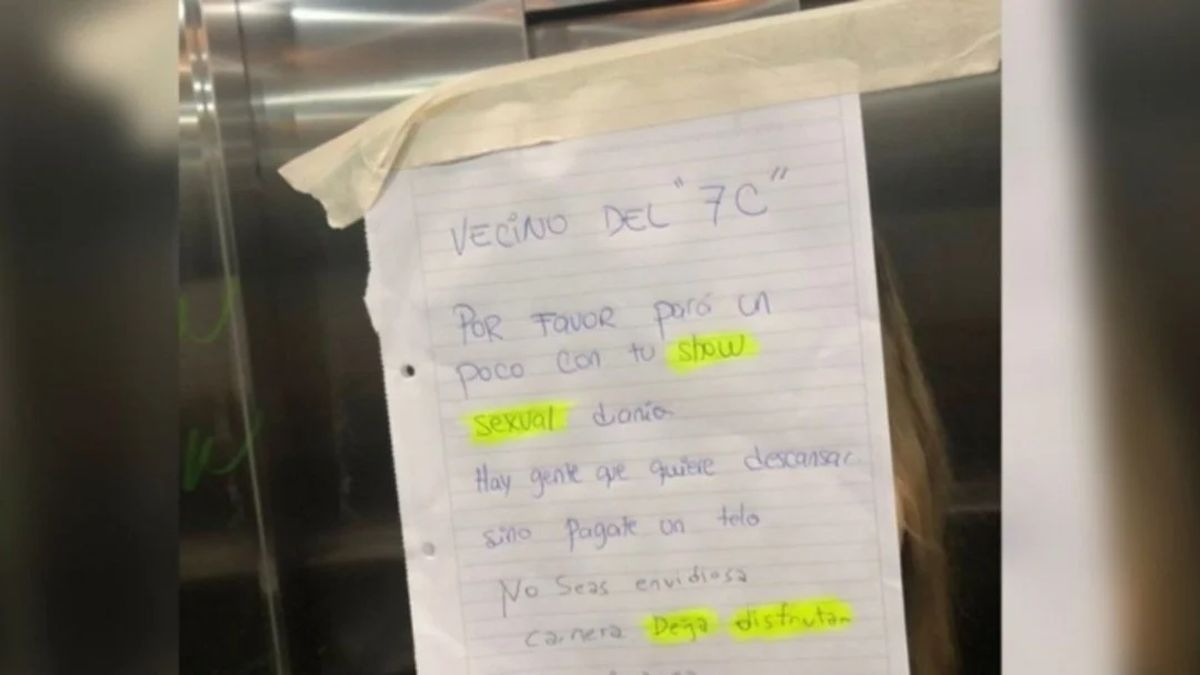 VECINO DEL "7C"
POR FAVOR pará un
poco con tu show
sexual diario
Hay gente que quiere descansar
sino pagate un telo
No Seas envidiosa
Carnera Deja disfrutar